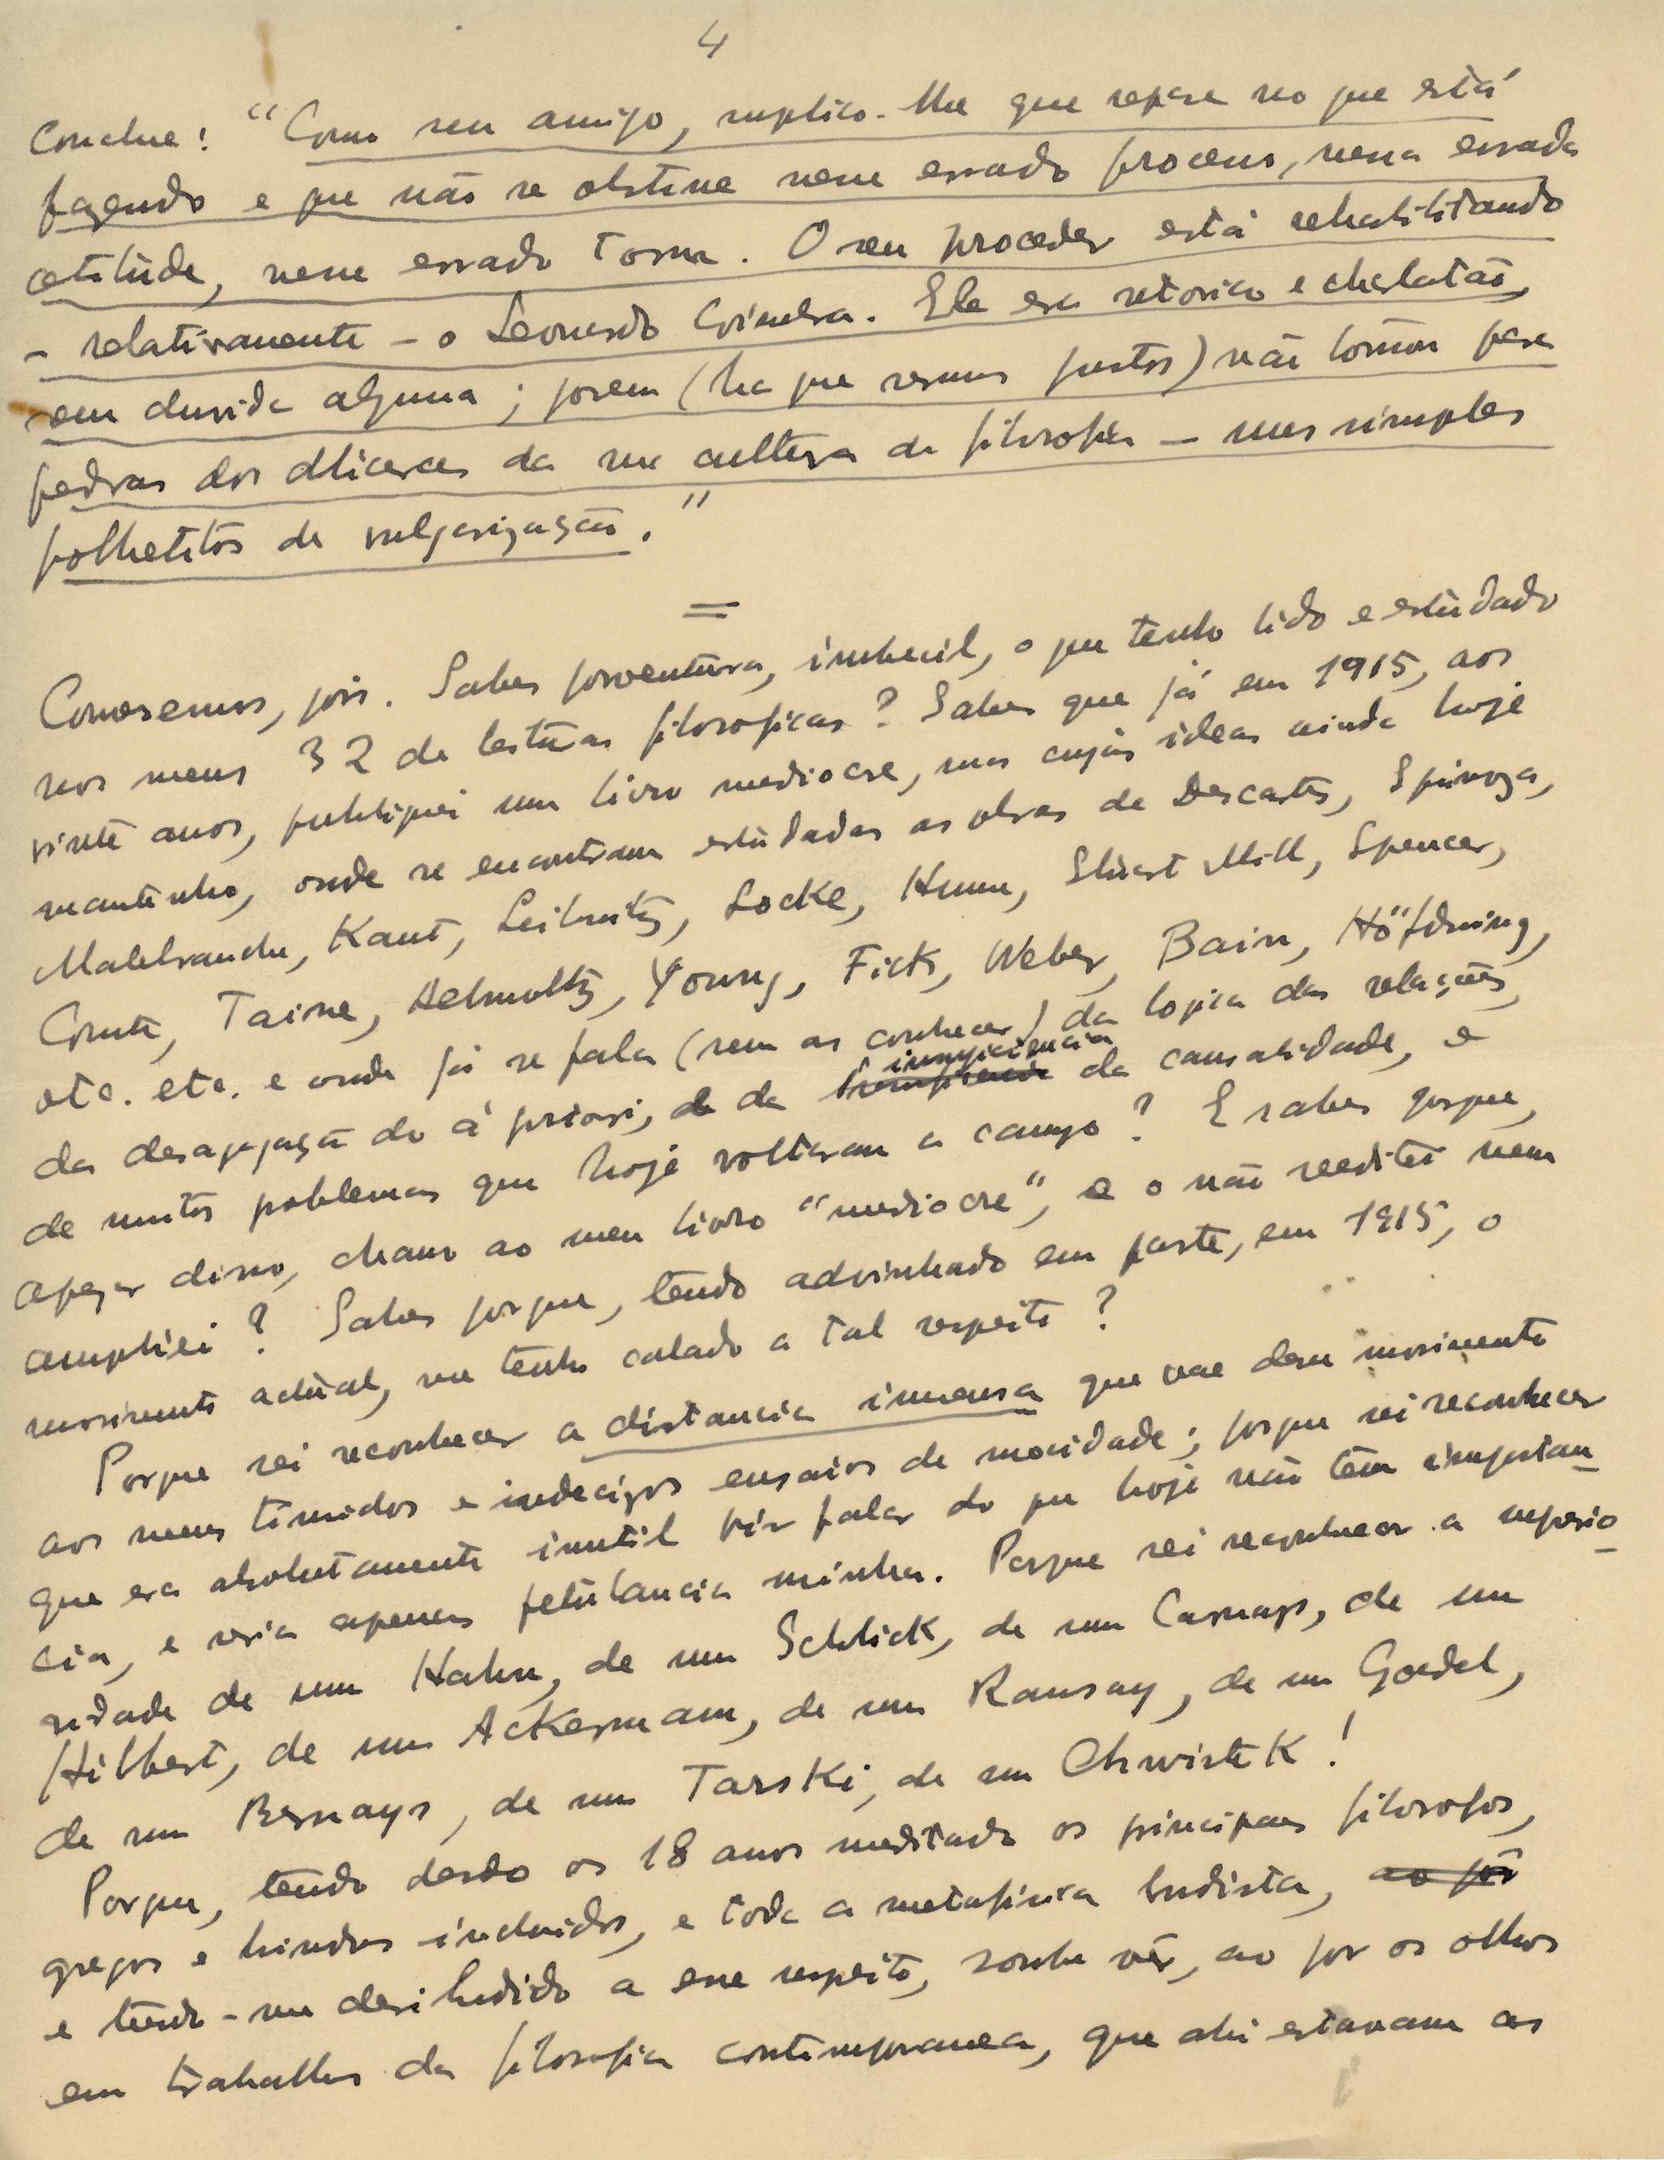 4
Conclue: "Como seu amigo, suplico-lhe que repare no que está
fazendo e que não se obstine nesse errado processo, nessa errada
atitude, nesse errado tom. O seu proceder está rehabilitando
- relativamente - o Leonardo Coimbra. Ele era retorico e charlatão,
sem duvida alguma; porem (ha que sermos justos) não tomou para
pedras dos alicerces da sua cultura de filosofia - uns simples
folhetitos de vulgarização."
=
Comecemos, pois. Sabes porventura, imbecil, o que tenho lido e estùdado
nos meus 32 de leituras filosoficas? Sabes que já em 1915, aos
vinte anos, publiquei um livro mediocre, mas cujas ideas ainda hoje
mantenho, onde se encontram estùdadas as obras de Descartes, Spinoza,
Malebranche, Kant, Leibnitz, Locke, Hume, Stùart Mill, Spencer,
Comte, Taine, Helmoltz, Young, Fick, Weber, Bain, Höffdning,
etc. etc. e onde já se fala (sem as conhecer) da logica das relações,
da desagregação do à priori, da insuficiencia da causalidade, e
de muitos problemas que hoje voltaram a campo? E sabes porque,
apezar disso, chamo ao meu livro "mediocre", e o não reeditei nem
ampliei? Sabes porque, tendo advinhado em parte, em 1915, o
movimento actùal, me tenho calado a tal respeito?
Porque sei reconhecer a distancia imensa que vae desse movimento
aos meus timidos e indecizos ensaios de mocidade; porque sei reconhecer
que era absolutamente inutil vir falar do que hoje não têm importan-
cia, e seria apenas petùlancia minha. Porque sei reconhecer a superio-
ridade de um Hahn, de um Schlick, de um Carnap, de um
Hilbert, de um Ackermann, de um Ramsay, de um Goedel,
de um Bernays, de um Tarski, de um Chwistek!
Porque, tendo desde os 18 anos meditado os principaes filosofos,
gregos e hindus incluidos, e toda a metafisica budista, ao pôr
e tendo-me desiludido a esse respeito, soube vêr, ao por os olhos
em trabalhos da filosofia contemporanea, que ahi estavam as